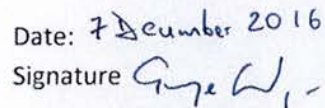 Date: 7 December 2016
Signature